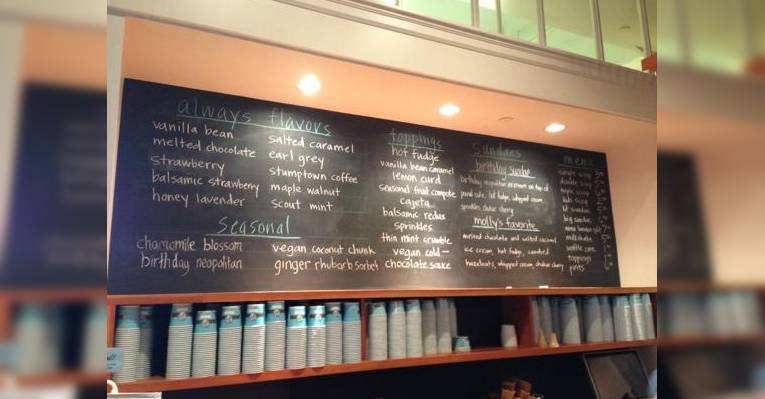 always flavors
vanilla bean
melted chocolate
strawberry
balsamic strawberry
honey lavender
salted caramel
earl grey
stumptown coffee
maple walnut
scout mint
Seasonal
chamomile blossom
birthday neopolitan
vegan coconut chunk
ginger rhubarb sorbet
toppings
hot fudge
vanilla bean caramel
lemon curd
seasonal fruit compote
cajeta
balsamic redux
sprinkles
thin mint crumble
vegan cold-
chocolate sauce
sundaes
birthday sundae
birthday neopolitan ice cream on top of
pound cake, hot fudge, whipped cream
sprinkles, cherry
molly's favorite
melted chocolate and salted caramel
ice cream, hot fudge, candied
hazelnuts, whipped cream, cherry
menu
single scoop
double scoop
triple scoop
kids scoop
big sundae
milkshake
waffle cone
toppings
pints